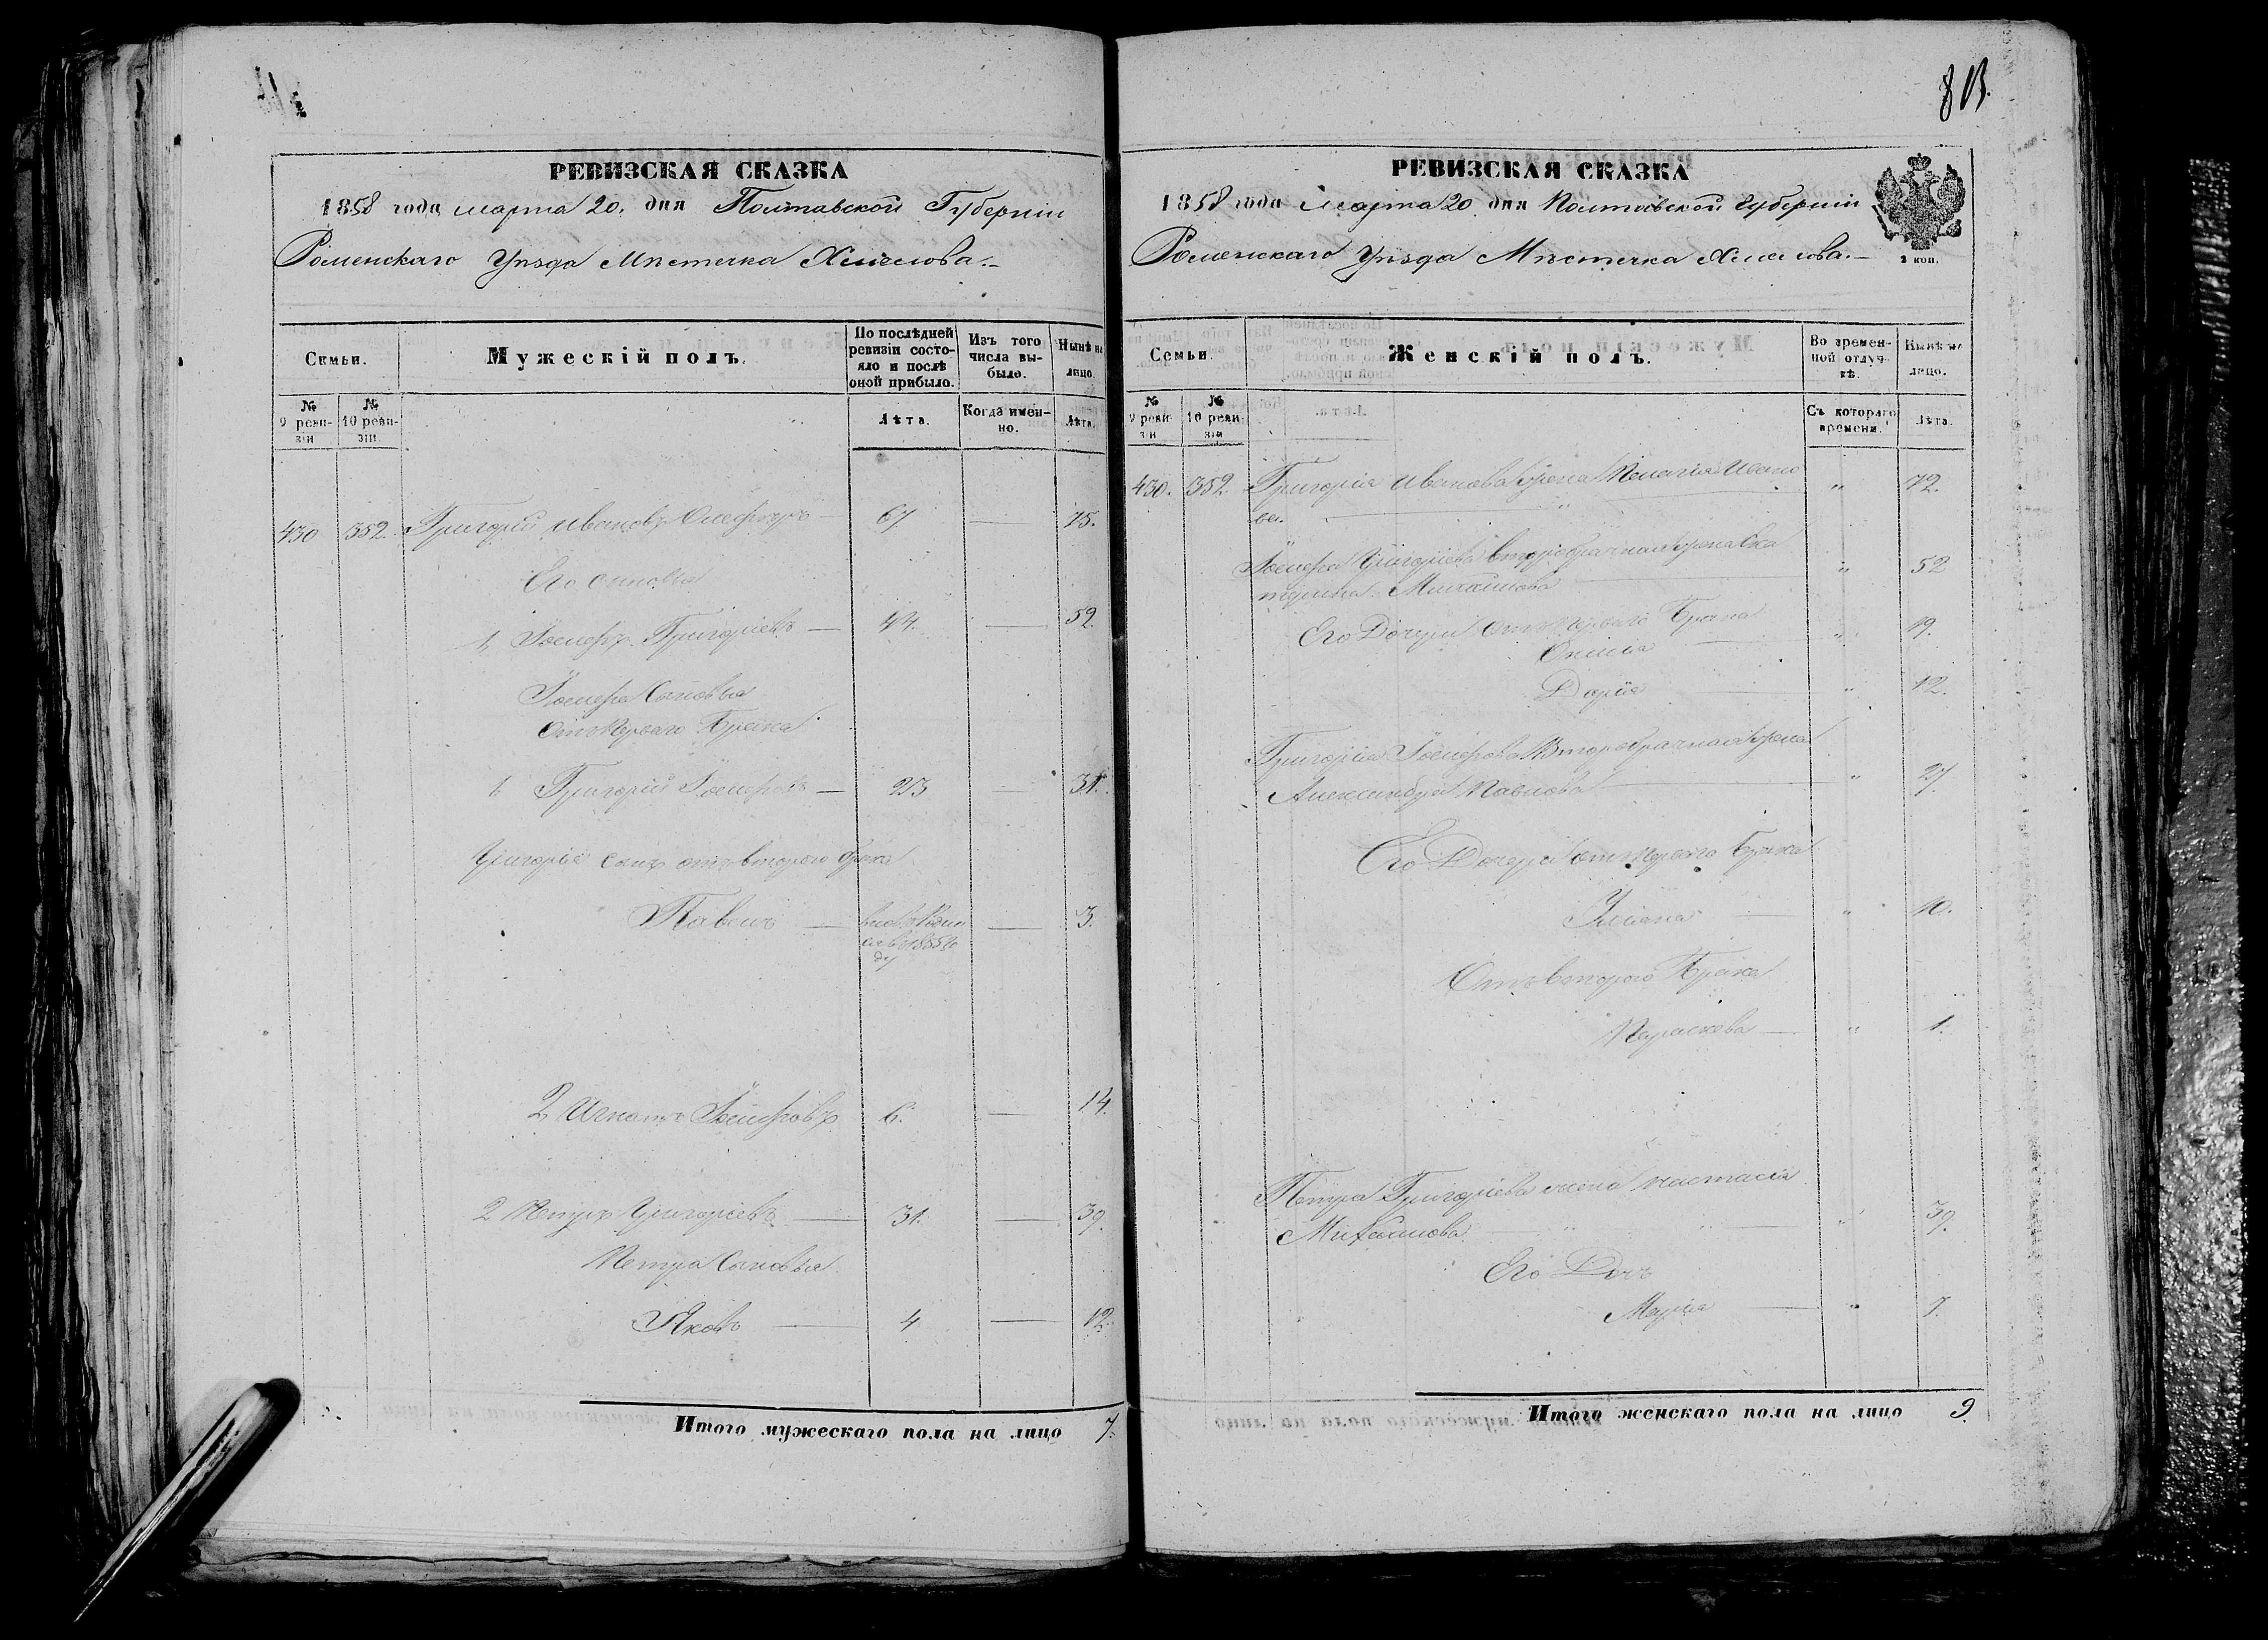 РЕВИЗСКАЯ СКАЗКА
1858 года марта 20. дня Полтавской Губерніи
Роменскаго Уѣзда Мѣстечка Хмелова.
Семьи.
Мужескій полъ.
По послѣдней ревизіи состояло и послѣ оной прибыло.
Изъ того числа выбыло.
Нынѣ на лицо.
№ 9 ревизіи
№ 10 ревизіи
Лѣта.
Когда именно.
Лѣта.
430 352. Григорій Ивановъ 67 — 75.
Его сыновья
1. Іосифъ Григоріевъ — 44. — 52.
Іосифа Сыновья
От Перваго Брака
1. Григорій Іосифовъ — 23 — 31.
Григорія сынъ отъ втораго брака
Павелъ — — 3.
1855 го
ду
2 Игнатъ Іосифовъ 6. — 14.
2 Петръ Григоріевъ — 31. — 39.
Петра Сыновья
Яковъ — 4 — 12.
Итого мужескаго пола на лицо 7.
813.
РЕВИЗСКАЯ СКАЗКА
1858 года Марта 20 дня Полтавской Губерніи
Роменскаго Уѣзда Мѣстечка Хмелова.—
2 коп.
Семьи.
Женскій полъ.
Во временной отлучкѣ.
Нынѣ на лицо.
№ 9 ревизіи
№ 10 ревизіи
Съ котораго времени.
Лѣта.
430. 352. Григорія Иванова жена Пелагія Ивано „ 72.
ва.
Іосифа Григоріева второбрачная жена Ека
терина Михайлова — „ 52
Его Дочери от Перваго Брака
„ 19.
Дарія — „ 12.
Григорія Іосифова Второбрачная жена
Александра Павлова — „ 27.
Его Дочери от Перваго Брака
Уліана — „ 10.
Отъ втораго Брака
Параскева — „ 1.
Петра Григоріева жена Настасія
Михайлова „ 39.
Его Дочь
Марія — „ 7.
Итого женскаго пола на лицо 9.